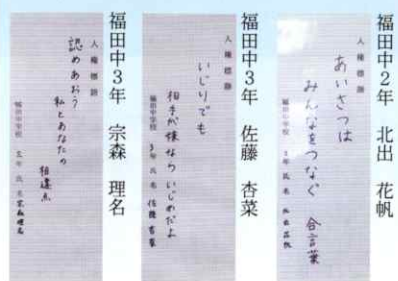 福田中2年 北出 花帆
人権標語
あいさつは
みんなをつなぐ 合言葉
福田中学校 2年 氏名 北出花帆
福田中3年 佐藤 杏菜
人権標語
いじりでも
相手が嫌ならいじめだよ
福田中学校 3年 氏名 佐藤杏菜
福田中3年 宗森 理名
人権標語
認めあおう
私とあなたの
相違点
福田中学校 3年 氏名 宗森理名